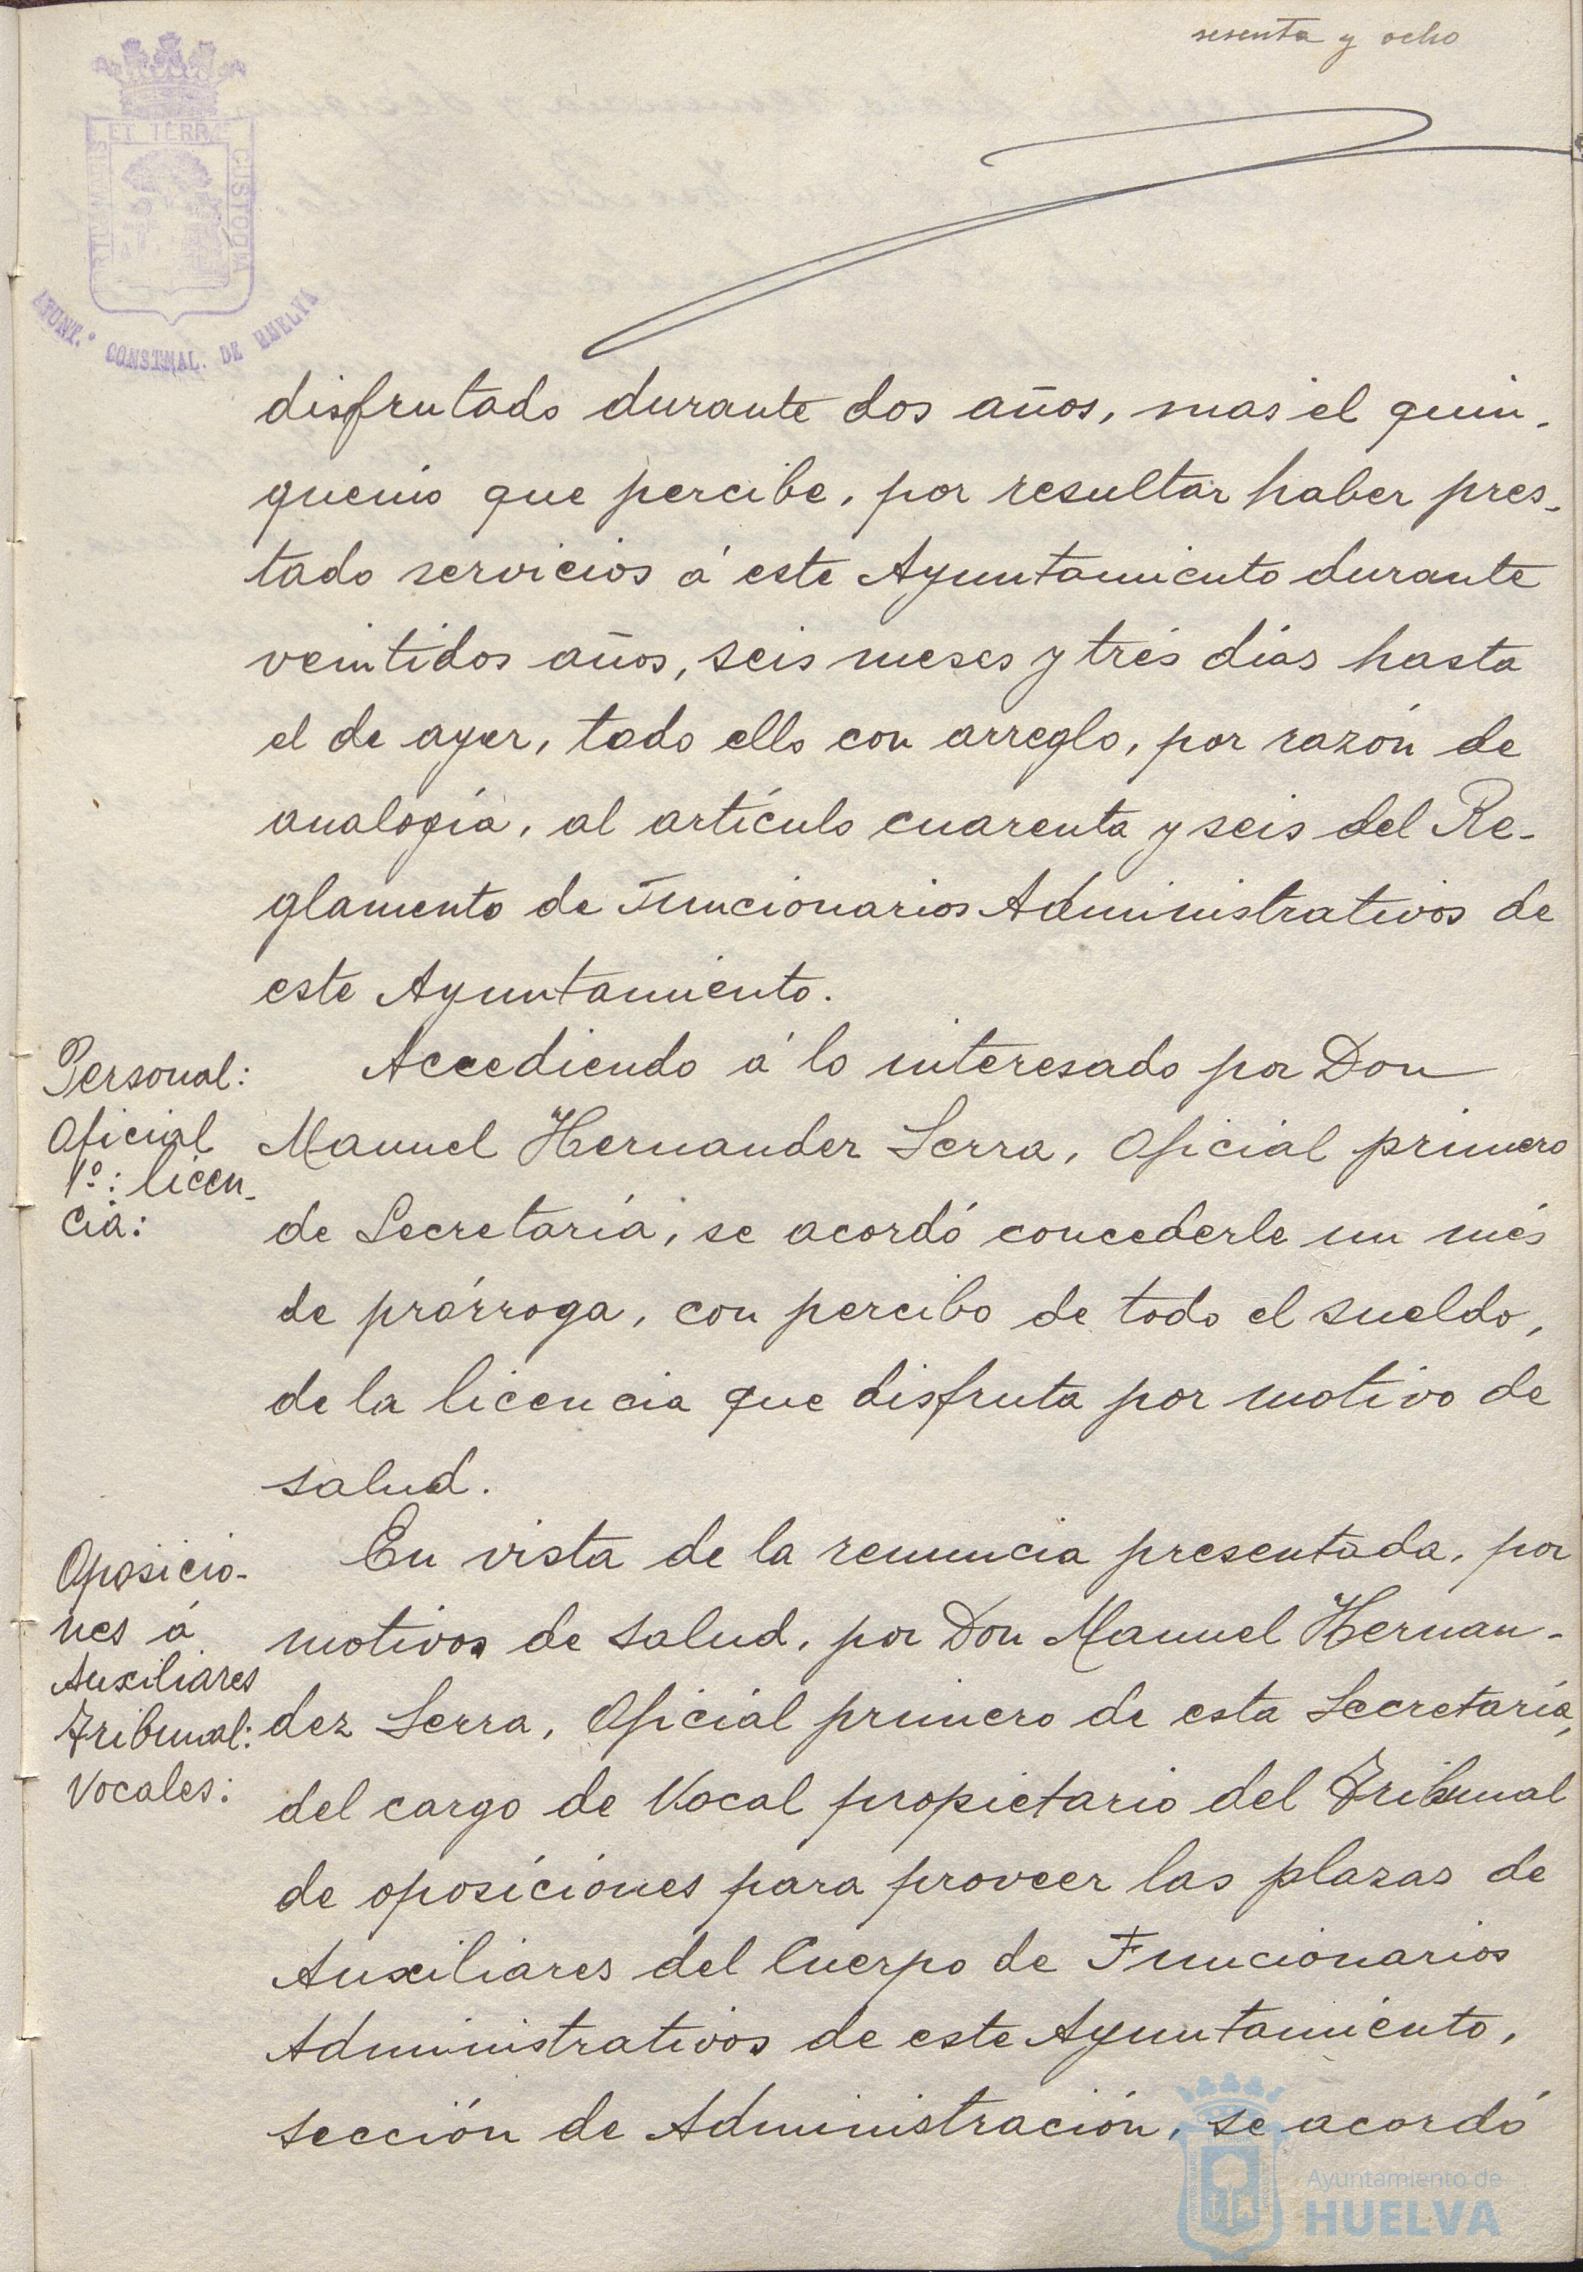 sesenta y ocho
PORTUS MARIS
ET TERRÆ
CUSTODIA
AYUNT.º CONSTNAL. DE HUELVA
disfrutado durante dos años, mas el quin-
quenio que percibe, por resultar haber pres-
tado servicios á este Ayuntamiento durante
veintidos años, seis meses y trés días hasta
el de ayer, todo ello con arreglo, por razón de
analogía, al artículo cuarenta y seis del Re-
glamento de Funcionarios Administrativos de
este Ayuntamiento.
Personal:
Oficial
1º: licen-
cia:
Accediendo á lo interesado por Don
Manuel Hernandez Serra, Oficial primero
de Secretaría, se acordó concederle un més
de prórroga, con percibo de todo el sueldo,
de la licencia que disfruta por motivo de
salud.
Oposicio-
nes á
Auxiliares
Tribunal:
Vocales:
En vista de la renuncia presentada, por
motivos de salud, por Don Manuel Hernan-
dez Serra, Oficial primero de esta Secretaría,
del cargo de Vocal propietario del Tribunal
de oposiciones para proveer las plazas de
Auxiliares del Cuerpo de Funcionarios
Administrativos de este Ayuntamiento,
sección de Administración, se acordó
Ayuntamiento de
HUELVA